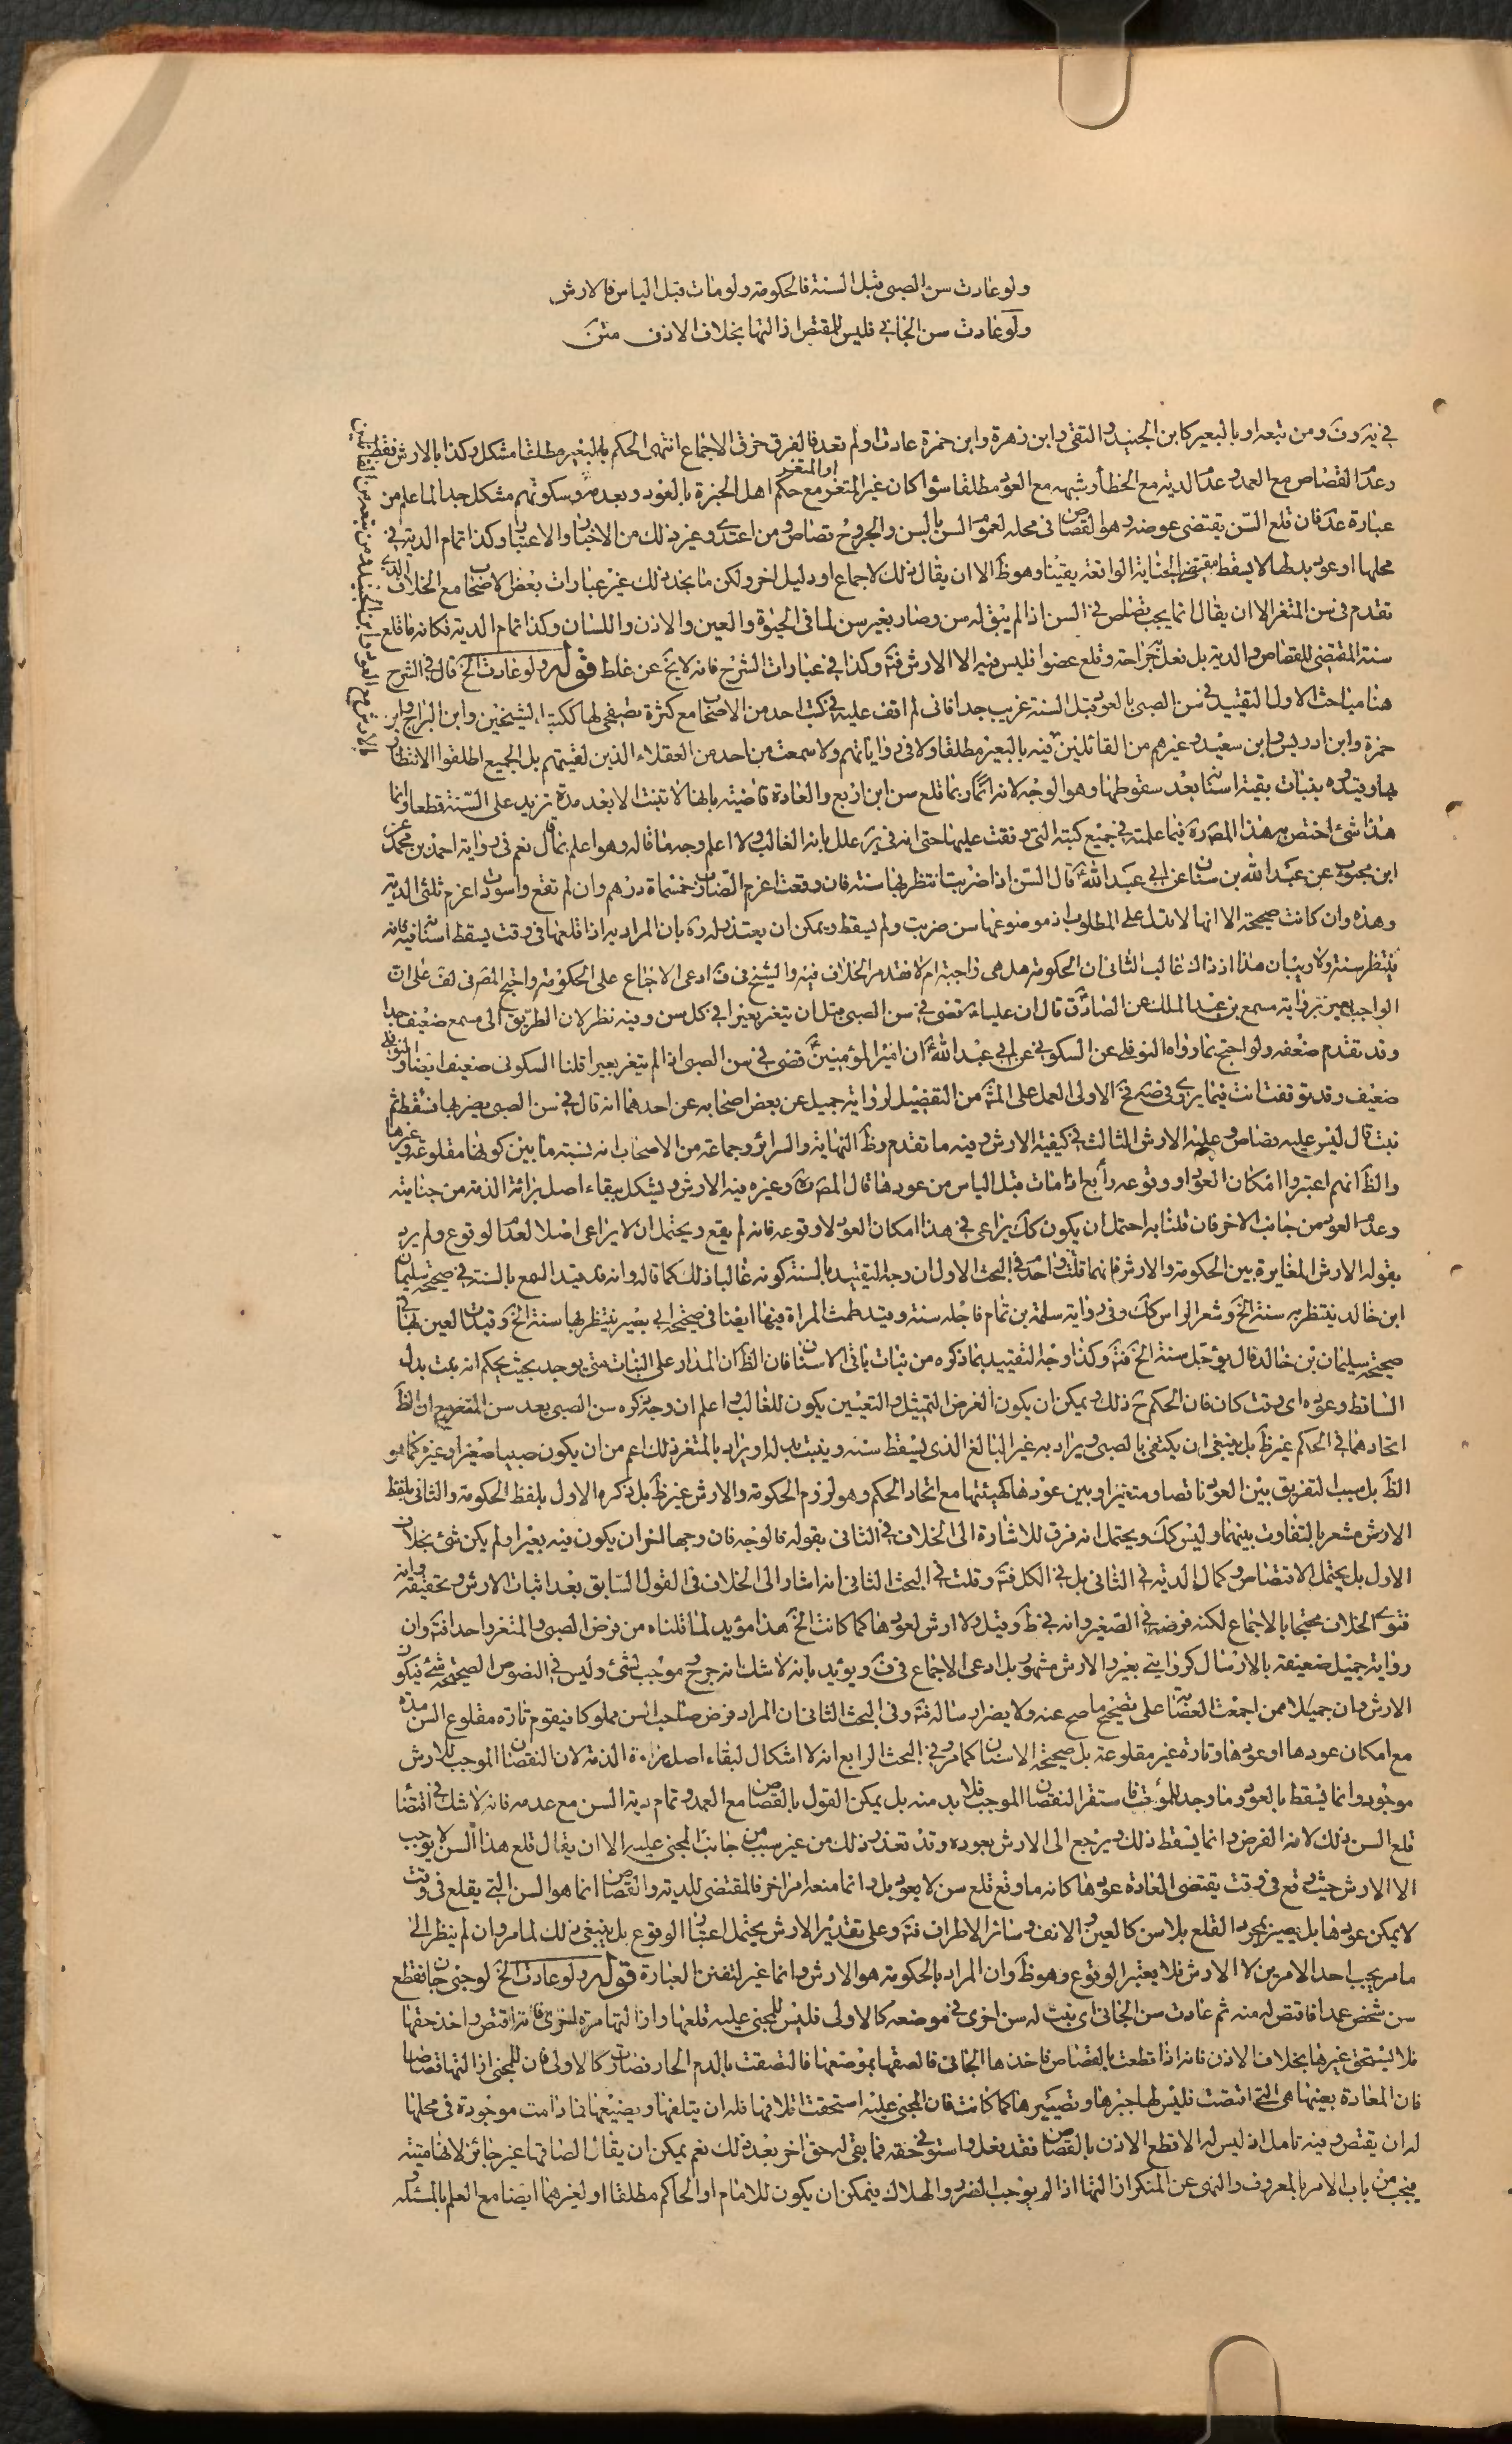 ولو عادت سن الصبي قبل السنة فالحكومة ولو مات قبل الياس فالارش
ولو عادت سن الجاني فليس للمقتص ازالتها بخلاف الاذن متن
في ير وف ومن تبعه او بالبعير كابن الجنيد والتقى وابن زهرة وابن حمزة عادت او لم تعد فالفرق خرق الاجماع انتهى الحكم بالبعير مطلقا مشكل وكذا بالارش فقط
او المتغر
وعدم القصاص مع العمد وعدم الدية مع الخطأ وشبهه مع العود مطلقا سواء كان غير المتغر مع حكم اهل الخبرة بالعود وبعدمه وسكوتهم مشكل جدا لما علم من
عبارة عد فان قلع السن يقتضى عوضه وهو القصاص في محله لعموم السن بالسن والجروح قصاص ومن اعتدى وغير ذلك من الاخبار والاعتبار وكذا تمام الدية في
محلها او عود بدلها لا يسقط مقتضى الجناية الواقعة يقينا وهو ظ الا ان يقال ذلك لاجماع او دليل اخر ولكن ما نجد ذلك غير عبارات بعض الاصحاب مع الخلاف الذي
تقدم في سن المثغر الا ان يقال انما يجب قصاص في السن اذا لم يبق له سن وصار بغير سن لما في الحيوة والعين والاذن واللسان وكذا تمام الدية فكانه ما قلع
سنه المقتضى للقصاص والدية بل فعل جراحة وقلع عضوا فليس فيه الا الارش فت وكذا في عبارات الشرح فانه لا يخ عن غلط قوله ولو عادت الخ قال في الشرح
هنا مباحث الاول التقييد في سن الصبي بالعود قبل السنة غريب جدا فانى لم اقف عليه في كتب احد من الاصحاب مع كثرة تصفحى لها ككتب الشيخين وابن البراج وابن
حمزة وابن ادريس وابن سعيد وغيرهم من القائلين فيه بالبعير مطلقا ولا في رواياتهم ولا سمعت من احد من العقلاء الذين لقيتهم بل الجميع اطلقوا الانتظار
بها وقيده بنبات بقية اسنانه بعد سقوطها وهو الوجه لانه ربما قلع سن ابن اربع والعادة قاضية بانها لا تنبت الا بعد مدة تزيد على السنة قطعا وانما
هذا شئ اختص به هذا المصره فيما علمته في جميع كتبه التى وقفت عليها حتى انه في ير علل بانه الغالب ولا اعلم وجه ما قاله وهو اعلم بما قال نعم في رواية احمد بن محمد عن
ابن محبوب عن عبد الله بن سنان عن ابي عبد الله ع قال السن اذا ضربت انتظر بها سنة فان وقعت اغرم الضارب خمسماة درهم وان لم تقع واسودت اغرم ثلثى الدية
وهذه وان كانت صحيحة الا انها لا تدل على المطلوب اذ موضوعها سن ضربت ولم يسقط ويمكن ان يعتذر له ره بان المراد به اذا قلعها في وقت يسقط اسنانه فيه فانه
ينتظر سنة ولا ريب ان هذا اذ ذاك غالب الثانى ان الحكومة هل هى واجبة ام لا تقدم الخلاف فيه والشيخ في ف ادعى الاجماع على الحكومة واحتج المصر في لف على ان
الواجب بعير برواية مسمع بن عبد الملك عن الصادق ع قال ان عليا ع قضى في سن الصبي قبل ان يثغر بعيرا في كل سن وفيه نظر لان الطريق الى مسمع ضعيف جدا
وقد تقدم ضعفه ولو احتج بما رواه النوفلى عن السكونى عن ابي عبد الله ع ان امير المؤمنين ع قضى في سن الصبي اذا لم يثغر بعيرا قلنا السكونى ضعيف ايضا والنوفلي
ضعيف وقد توقفت انت فيما يروى وفي صه فح الاولى العمل على المش من التفصيل لرواية جميل عن بعض اصحابه عن احدهما انه قال في سن الصبي يضربها فتسقط ثم
نبت قال ليس عليه قصاص وعليه الارش الثالث في كيفية الارش وفيه ما تقدم وظ النهاية والسرائر وجماعة من الاصحاب انه نسبة ما بين كونها مقلوعة وغيرها
والظ انهم اعتبروا امكان العود او وقوعه رابع اذا مات قبل الياس من عودها قال المصره وغيره فيه الارش ويشكل ببقاء اصل برائة الذمة من جناية
وعدم العود من جانب الاخر فان قلنا به احتمل ان يكون كك يراعى في هذا امكان العود لا وقوعه فانه لم يقع ويحتمل ان لا يراعى اصلا لعدم الوقوع ولم يرد
بقوله الارش المغايرة بين الحكومة والارش فانهما واحد قلت في البحث الاول ان وجه التقييد بالسنة كونه غالبا ذلك كما قاله وانه قد قيد السمع بالسنة في صحيحة سليمان
ابن خالد ينتظر به سنة الخ وشعر الراس كك وفي رواية سلمة بن تمام فاجله سنة وقيد طمث المراة فيها ايضا في صحيحة ابي بصير ينتظر بها سنة الخ وقيدت العين بها في
صحيحة سليمان بن خالد قال يؤجل سنة الخ فت وكذا وجه التقييد بما ذكره من نبات باقى الاسنان فان الظ ان المدار على النبات متى يوجد بحيث يحكم انه نبت بدل
الساقط وعوده اى وقت كان فان الحكم ح ذلك ويمكن ان يكون الغرض التمثيل والتعيين يكون للغالب واعلم ان وجه ذكره سن الصبي بعد سن المثغر مع ان الظ
اتحادهما في الحكم غير ظ بل ينبغى ان يكتفى بالصبي ويراد به غير البالغ الذى يسقط سنه وينبت بدلها ويراد بالمثغر ذلك اعم من ان يكون صبيا صغيرا وغيره كما هو
الظ بل سبب التفريق بين العود ناقصا ومتغيرا وبين عودها كهيئتها مع اتحاد الحكم وهو لزوم الحكومة والارش غير ظ بل ذكره الاول بلفظ الحكومة والثانى بلفظ
الارش مشعر بالتفاوت بينهما وليس كك ويحتمل انه فرق للاشارة الى الخلاف في الثانى بقوله فالوجه فان وجها اخر ان يكون فيه بعيرا ولم يكن شئ بخلاف
الاول بل يحتمل الاقتصاص وكمال الدية في الثانى بل في الكل فت وقلت في البحث الثانى انه اشار الى الخلاف في القول السابق بعد اثبات الارش وتحقيقه وانه
فتوى الخلاف محتجا بالاجماع لكنه فرضه في الصغير وانه في ط وقيل ولا ارش لعودها كما كانت الخ هذا مؤيد لما قلناه من فرض الصبي والمثغر واحدا فت وان
رواية جميل ضعيفة بالارسال كروايتى بعير والارش مشهور بل ادعى الاجماع في ف ويؤيد بانه لا شك انه جرح موجب لشئ وليس في النصوص الصحيحة شئ فيكون
الارش وان جميلا ممن اجمعت العصابة على تصحيح ما صح عنه ولا يضر ارساله فت وفي البحث الثانى ان المراد فرض صاحب السن مملوكا فيقوم تارة مقلوع السن مدة
مع امكان عودها او عودها وتارة غير مقلوعة بل صحيحة الاسنان كما مر وفي البحث الرابع انه لا اشكال لبقاء اصل براءة الذمة لان النقصان الموجب للارش
موجود وانما يسقط بالعود وما وجد للموت فاستقر النقصان الموجب فلا بد منه بل يمكن القول بالقصاص مع العمد وتمام دية السن مع عدمه فانه لا شك في اقتضاء
قلع السن ذلك لانه الفرض وانما يسقط ذلك ويرجع الى الارش بعوده وقد تعذر ذلك من غير سبب من جانب المجنى عليه الا ان يقال قلع هذا السن لا يوجب
الا الارش حيث وقع في وقت يقتضى العادة عودها كانه ما وقع قلع سن لا يعود بل وانما منعه امر اخر فالمقتضى للدية والقصاص انما هو السن التى يقلع في وقت
لا يمكن عودها بل يصير بمجرد القلع بلا سن كالعين والانف وسائر الاطراف فت وعلى تقدير الارش يحتمل اعتبار الوقوع بل ينبغى ذلك لما مر وان لم ينظر الى
ما مر يجب احد الامرين لا الارش فلا يعتبر الوقوع وهو ظ وان المراد بالحكومة هو الارش وانما غير لتفنن العبارة قوله ولو عادت الخ لو جنى جان فقطع
سن شخص عمدا فاقتص له منه ثم عادت سن الجانى اى نبت له سن اخرى في موضعه كالاولى فليس للمجنى عليه قلعها وازالتها مرة اخرى فانه اقتص واخذ حقها
فلا يستحق غيرها بخلاف الاذن فانه اذا قطعت بالقصاص فاخذها الجانى فالصقها بموضعها فالتصقت بالدم الحار فصارت كالاولى فان للمجنى ازالتها قصاصا
فان المعادة بعينها هى التى اقتصت فليس لها جبرها وتصييرها كما كانت فان المجنى عليه استحقت اتلافها فله ان يتلفها ويضيعها فما دامت موجودة في محلها
له ان يقتص وفيه تامل اذ ليس له الا قطع الاذن بالقصاص فقد فعل واستوفى حقه فما بقى له حق اخر بعد ذلك نعم يمكن ان يقال الصاقها غير جائز لانها ميتة
فيجب من باب الامر بالمعروف والنهى عن المنكر ازالتها اذا لم يوجب الضرر والهلاك فيمكن ان يكون للامام او الحاكم مطلقا او لغيرهما ايضا مع العلم بالمسئلة